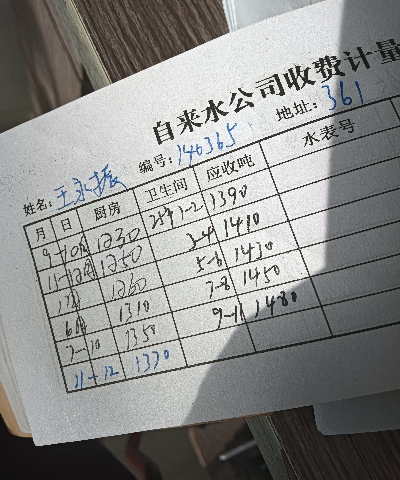 自来水公司收费计量
姓名: 王永振 编号: 146365 地址: 361
月 日 厨房 卫生间 应收吨 水表号
9-10月 1230 1-2 1390
11-12月 1250 3-4 1410
1260 5-6 1430
6月 1310 7-8 1450
7-10 1350 9-11 1480
11-12 1370